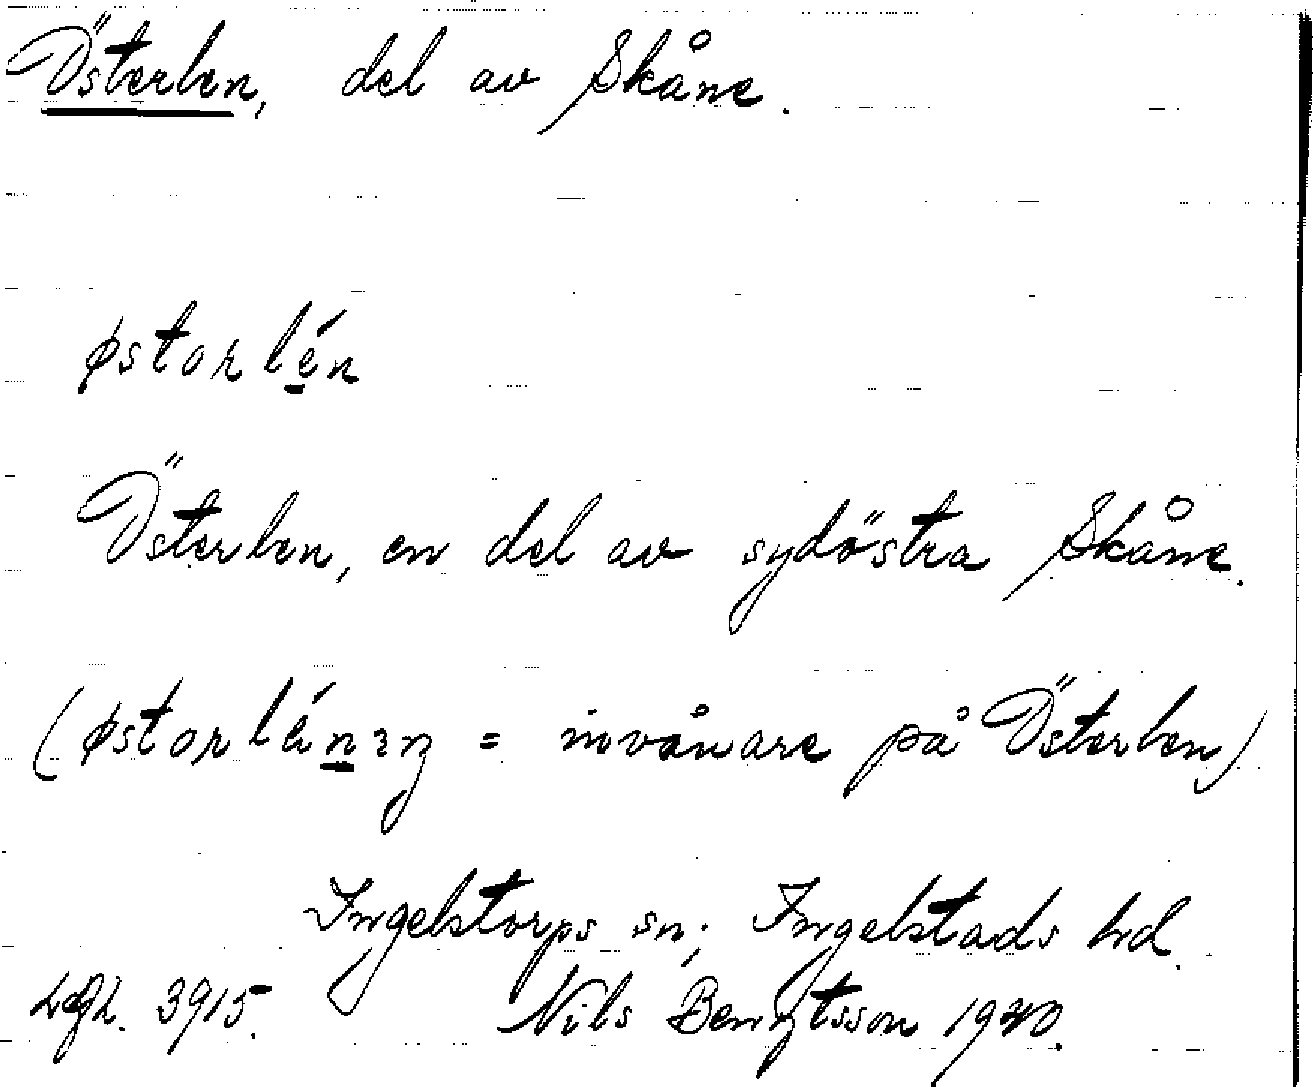 Österlen, del av Skåne.
østɑrlén
Österlen, en del av sydöstra Skåne.
(østɑrléṉıŋ = invånare på Österlen)
Ingelstorps sn; Ingelstads hd.
3915. Nils Bengtsson 1940.